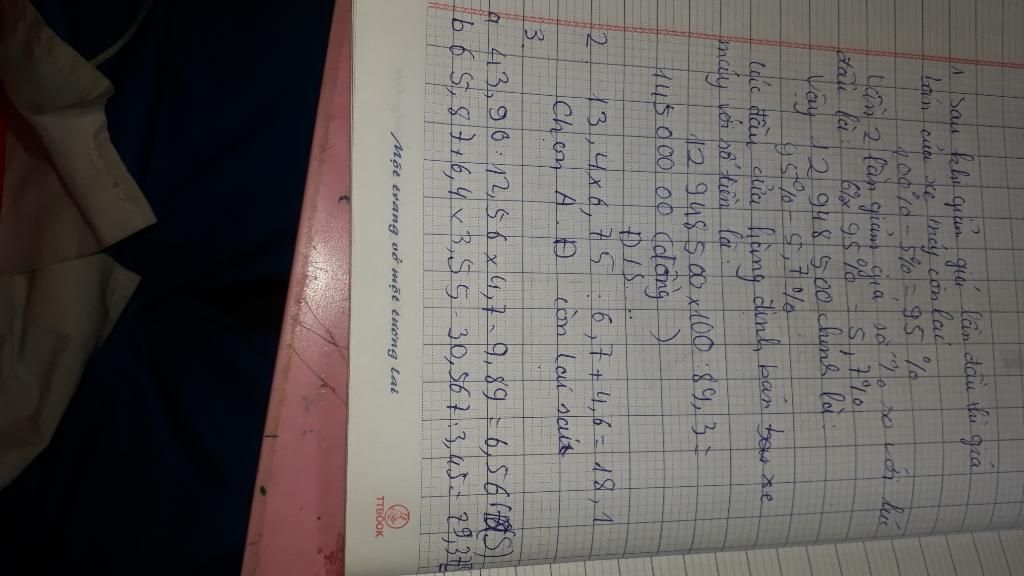 1 Sau khi giảm giá lần đầu thì giá
bán của xe máy còn lại
100% - 5% = 95 %
Lần 2 lần giảm giá số % so với lúc
đầu là: 6% 95 % = 5,7%
Vậy 12 948 500 chính là:
95% - 5,7%
Lúc đầu cửa hàng định bán xe
máy với số tiền là:
12 948 500 x 100 : 89,3 =
145 000 00 (đồng)
Đ/S:
2 13,4 x 6,75 : 6,7 + 4,6 = 18,1
Chọn A. Đ còn lại sai
3.
a 43,96 : 12,56 x 4,7 - 9,89 = 6,56 (S)
b 65,87 + 6,4 x 3,55 - 30,567 : 3,45 = 79,37
Một trang vở một tương lai
TTBOOK